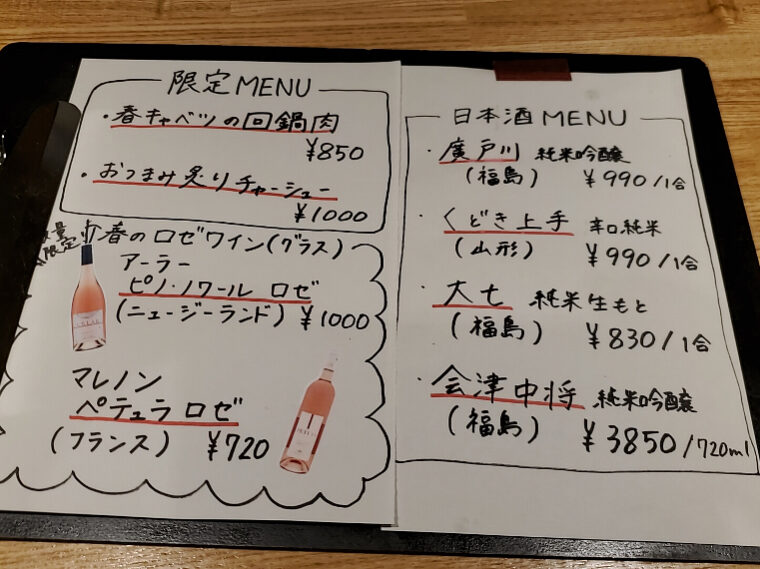 限定MENU
・春キャベツの回鍋肉
¥850
・おつまみ炙りチャーシュー
¥1000
数量限定!! 春のロゼワイン(グラス)
アーラー
ピノ・ノワール ロゼ
(ニュージーランド) ¥1000
マレノン
ペテュラ ロゼ
(フランス) ¥720
日本酒MENU
・廣戸川 純米吟醸
(福島) ¥990/1合
・くどき上手 辛口純米
(山形) ¥990/1合
・大七 純米生もと
(福島) ¥830/1合
・会津中将 純米吟醸
(福島) ¥3850/720ml